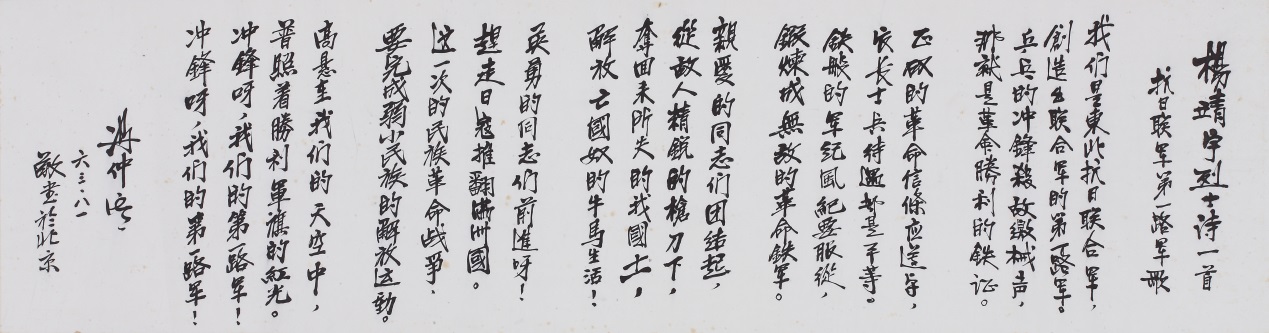 楊靖宇烈士诗一首
抗日联军第一路军歌
我们是東北抗日联合军，
創造出联合军的第一路军。
乒乓的冲鋒殺敌缴械声，
那就是革命勝利的鉄证。
正确的革命信條应遵守，
官长士兵待遇都是平等。
鉄般的军纪風紀要服從，
鍛煉成無敌的革命鉄军。
親愛的同志们团结起，
從敌人精銳的槍刀下，
奪回来所失的我國土，
解放亡國奴的牛馬生活！
英勇的同志们前進呀！
趕走日寇推翻满洲國。
这一次的民族革命战爭，
要完成弱小民族的解放运动。
高悬在我们的天空中，
普照着勝利軍旗的紅光。
冲鋒呀，我们的第一路军！
冲鋒呀，我们的第一路军！
馮仲云
六三.八.一
敬書於北京